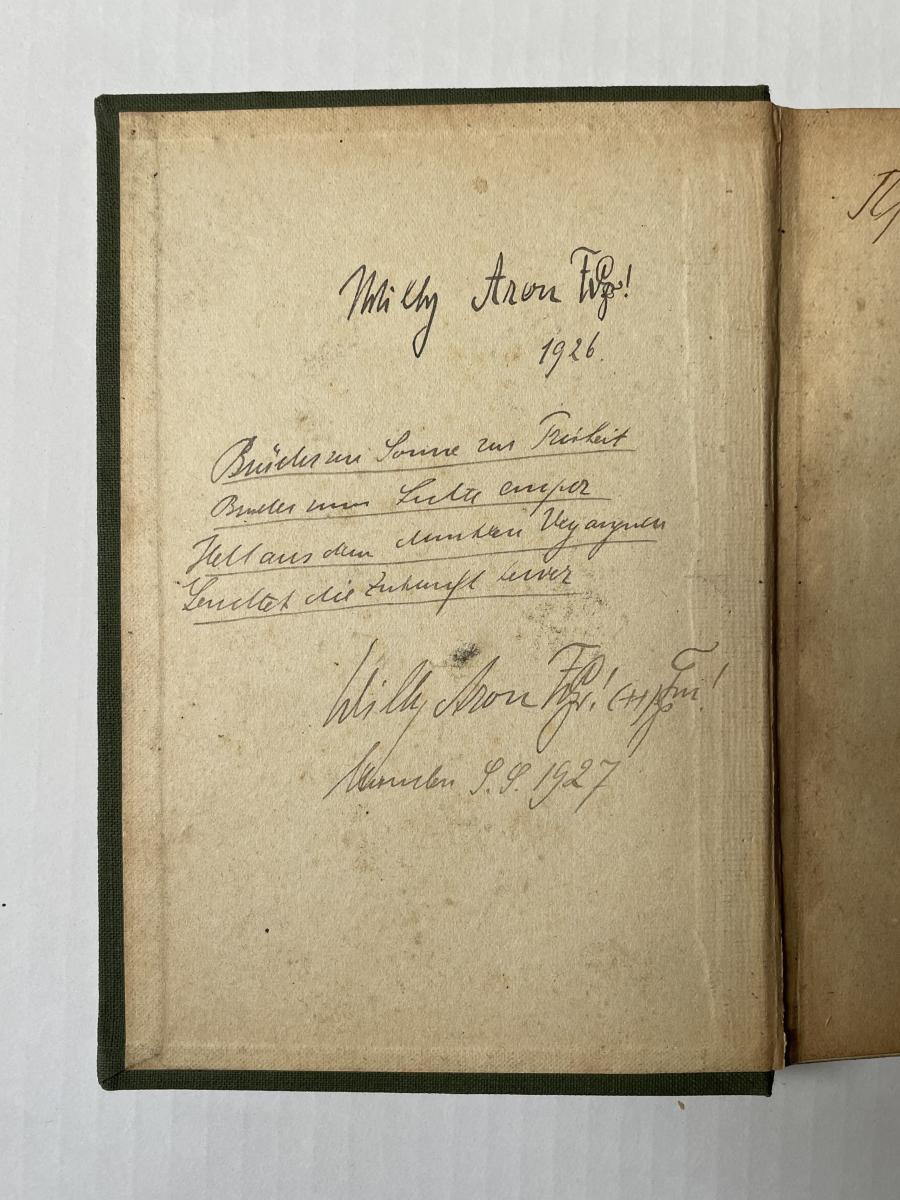 Willy Aron
1926.
Brüder zur Sonne zur Freiheit
Brüder zum Lichte empor
Hell aus dem dunklen Vergangnen
Leuchtet die Zukunft hervor
Willy Aron
München S.S. 1927